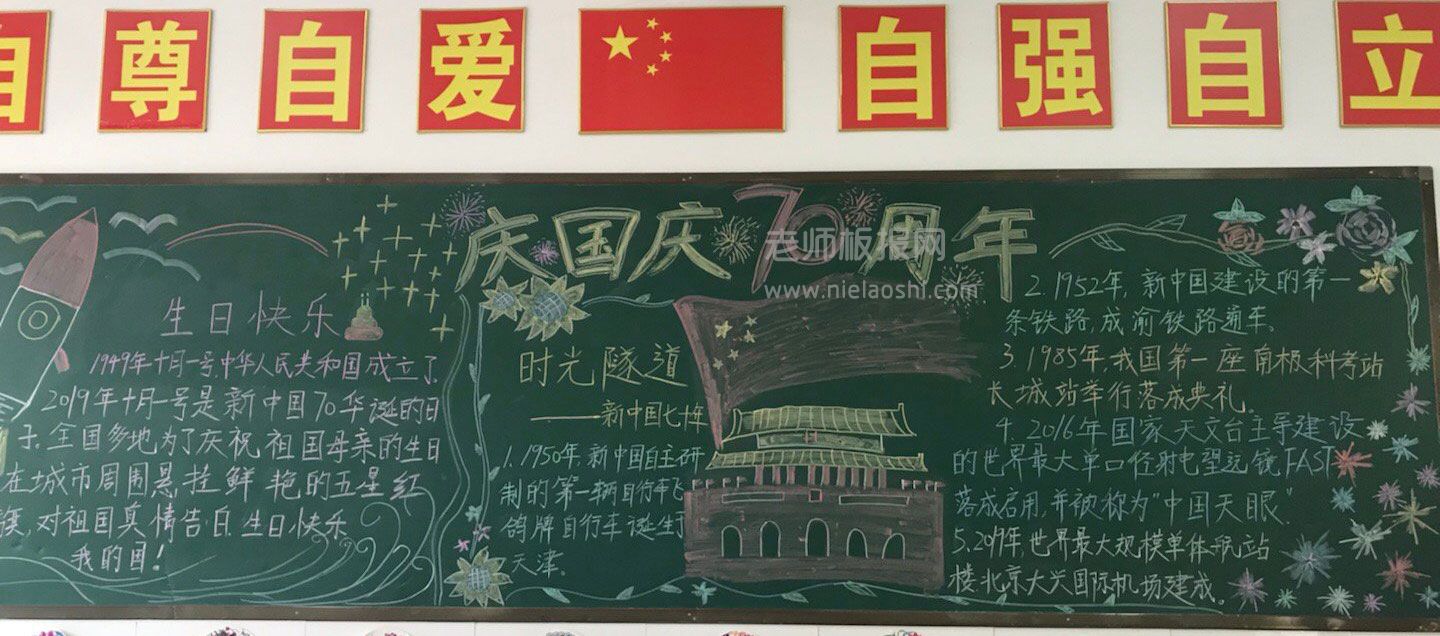 自尊自爱 自强自立
庆国庆70周年
老师板报网
www.nielaoshi.com
生日快乐
1949年十月一号,中华人民共和国成立了
2019年十月一号是新中国70华诞的日
子.全国多地为了庆祝祖国母亲的生日
在城市周围悬挂鲜艳的五星红
旗,对祖国真情告白.生日快乐
我的国!
时光隧道
——新中国七十年
1.1950年,新中国自主研
制的第一辆自行车飞
鸽牌自行车诞生于
天津。
2.1952年,新中国建设的第一
条铁路,成渝铁路通车。
3.1985年,我国第一座南极科考站
长城站举行落成典礼。
4.2016年国家天文台主导建设
的世界最大单口径射电望远镜FAST
落成启用,并被称为“中国天眼”.
5.2019年,世界最大规模单体航站
楼北京大兴国际机场建成。